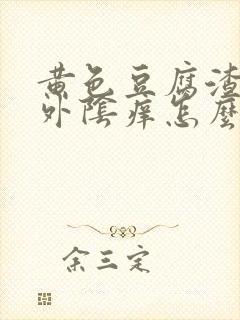 黄色豆腐渣
外陰痒怎麼
余三定